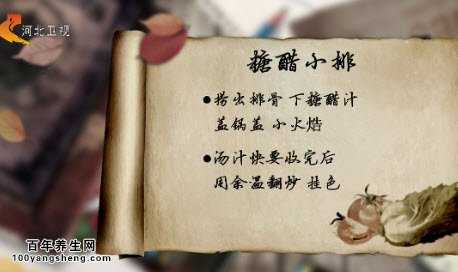 河北卫视
糖醋小排
●捞出排骨 下糖醋汁
盖锅盖 小火焅
●汤汁快要收完后
用余温翻炒 挂色
百年养生网
100yangsheng.com